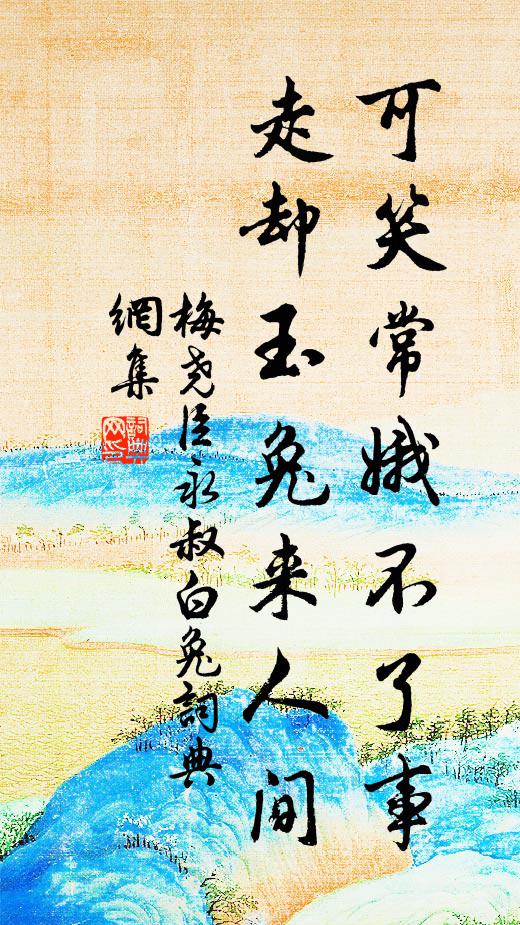 可笑常娥不了事
走却玉兔来人间
梅尧臣永叔白兔詞典
網集